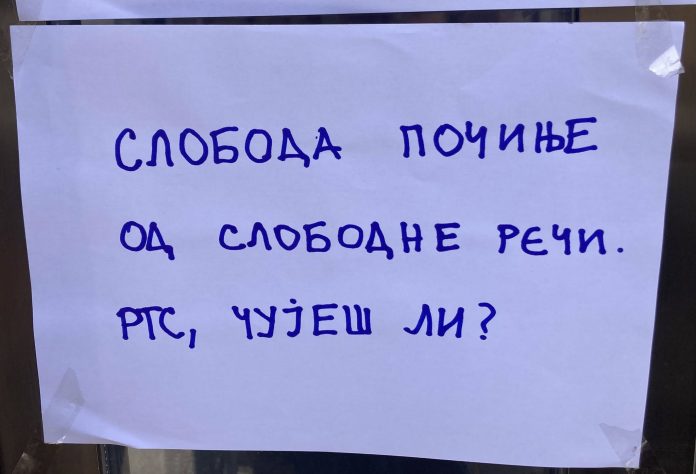 СЛОБОДА ПОЧИЊЕ
ОД СЛОБОДНЕ РЕЧИ.
РТС, ЧУЈЕШ ЛИ?